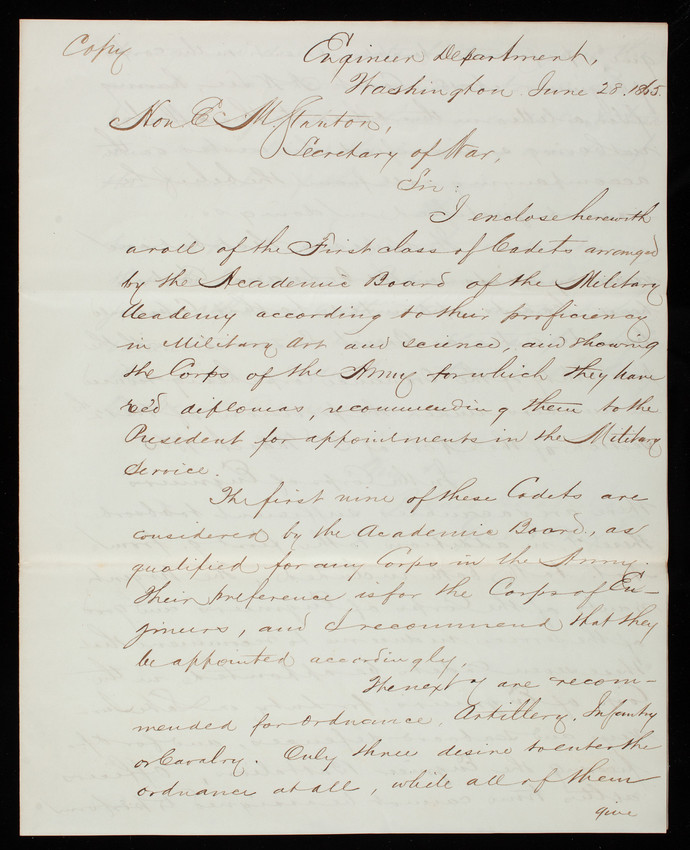 Copy
Engineer Department,
Washington June 28. 1865.
Hon E M. Stanton,
Secretary of War,
Sir:
I enclose herewith
a roll of the First class of Cadets arranged
by the Academic Board of the Military
Academy according to their proficiency
in Military Art and science, and showing
the Corps of the Army for which they have
rec'd diplomas, recommending them to the
President for appointments in the Military
Service.
The first nine of these Cadets are
considered by the Academic Board, as
qualified for any Corps in the Army.
Their preference is for the Corps of En-
gineers, and I recommend that they
be appointed accordingly.
The next 7 are recom-
mended for Ordnance, Artillery, Infantry
or Cavalry. Only three desire to enter the
ordnance at all, while all of them
give